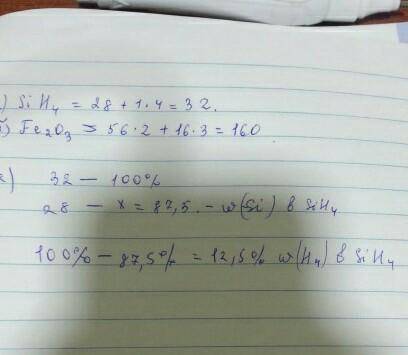 ) SiH₄ = 28 + 1·4 = 32.
б) Fe₂O₃ = 56·2 + 16·3 = 160
а) 32 — 100%
28 — x = 87,5. - w(Si) в SiH₄
100% — 87,5% = 12,5% w(H₄) в SiH₄